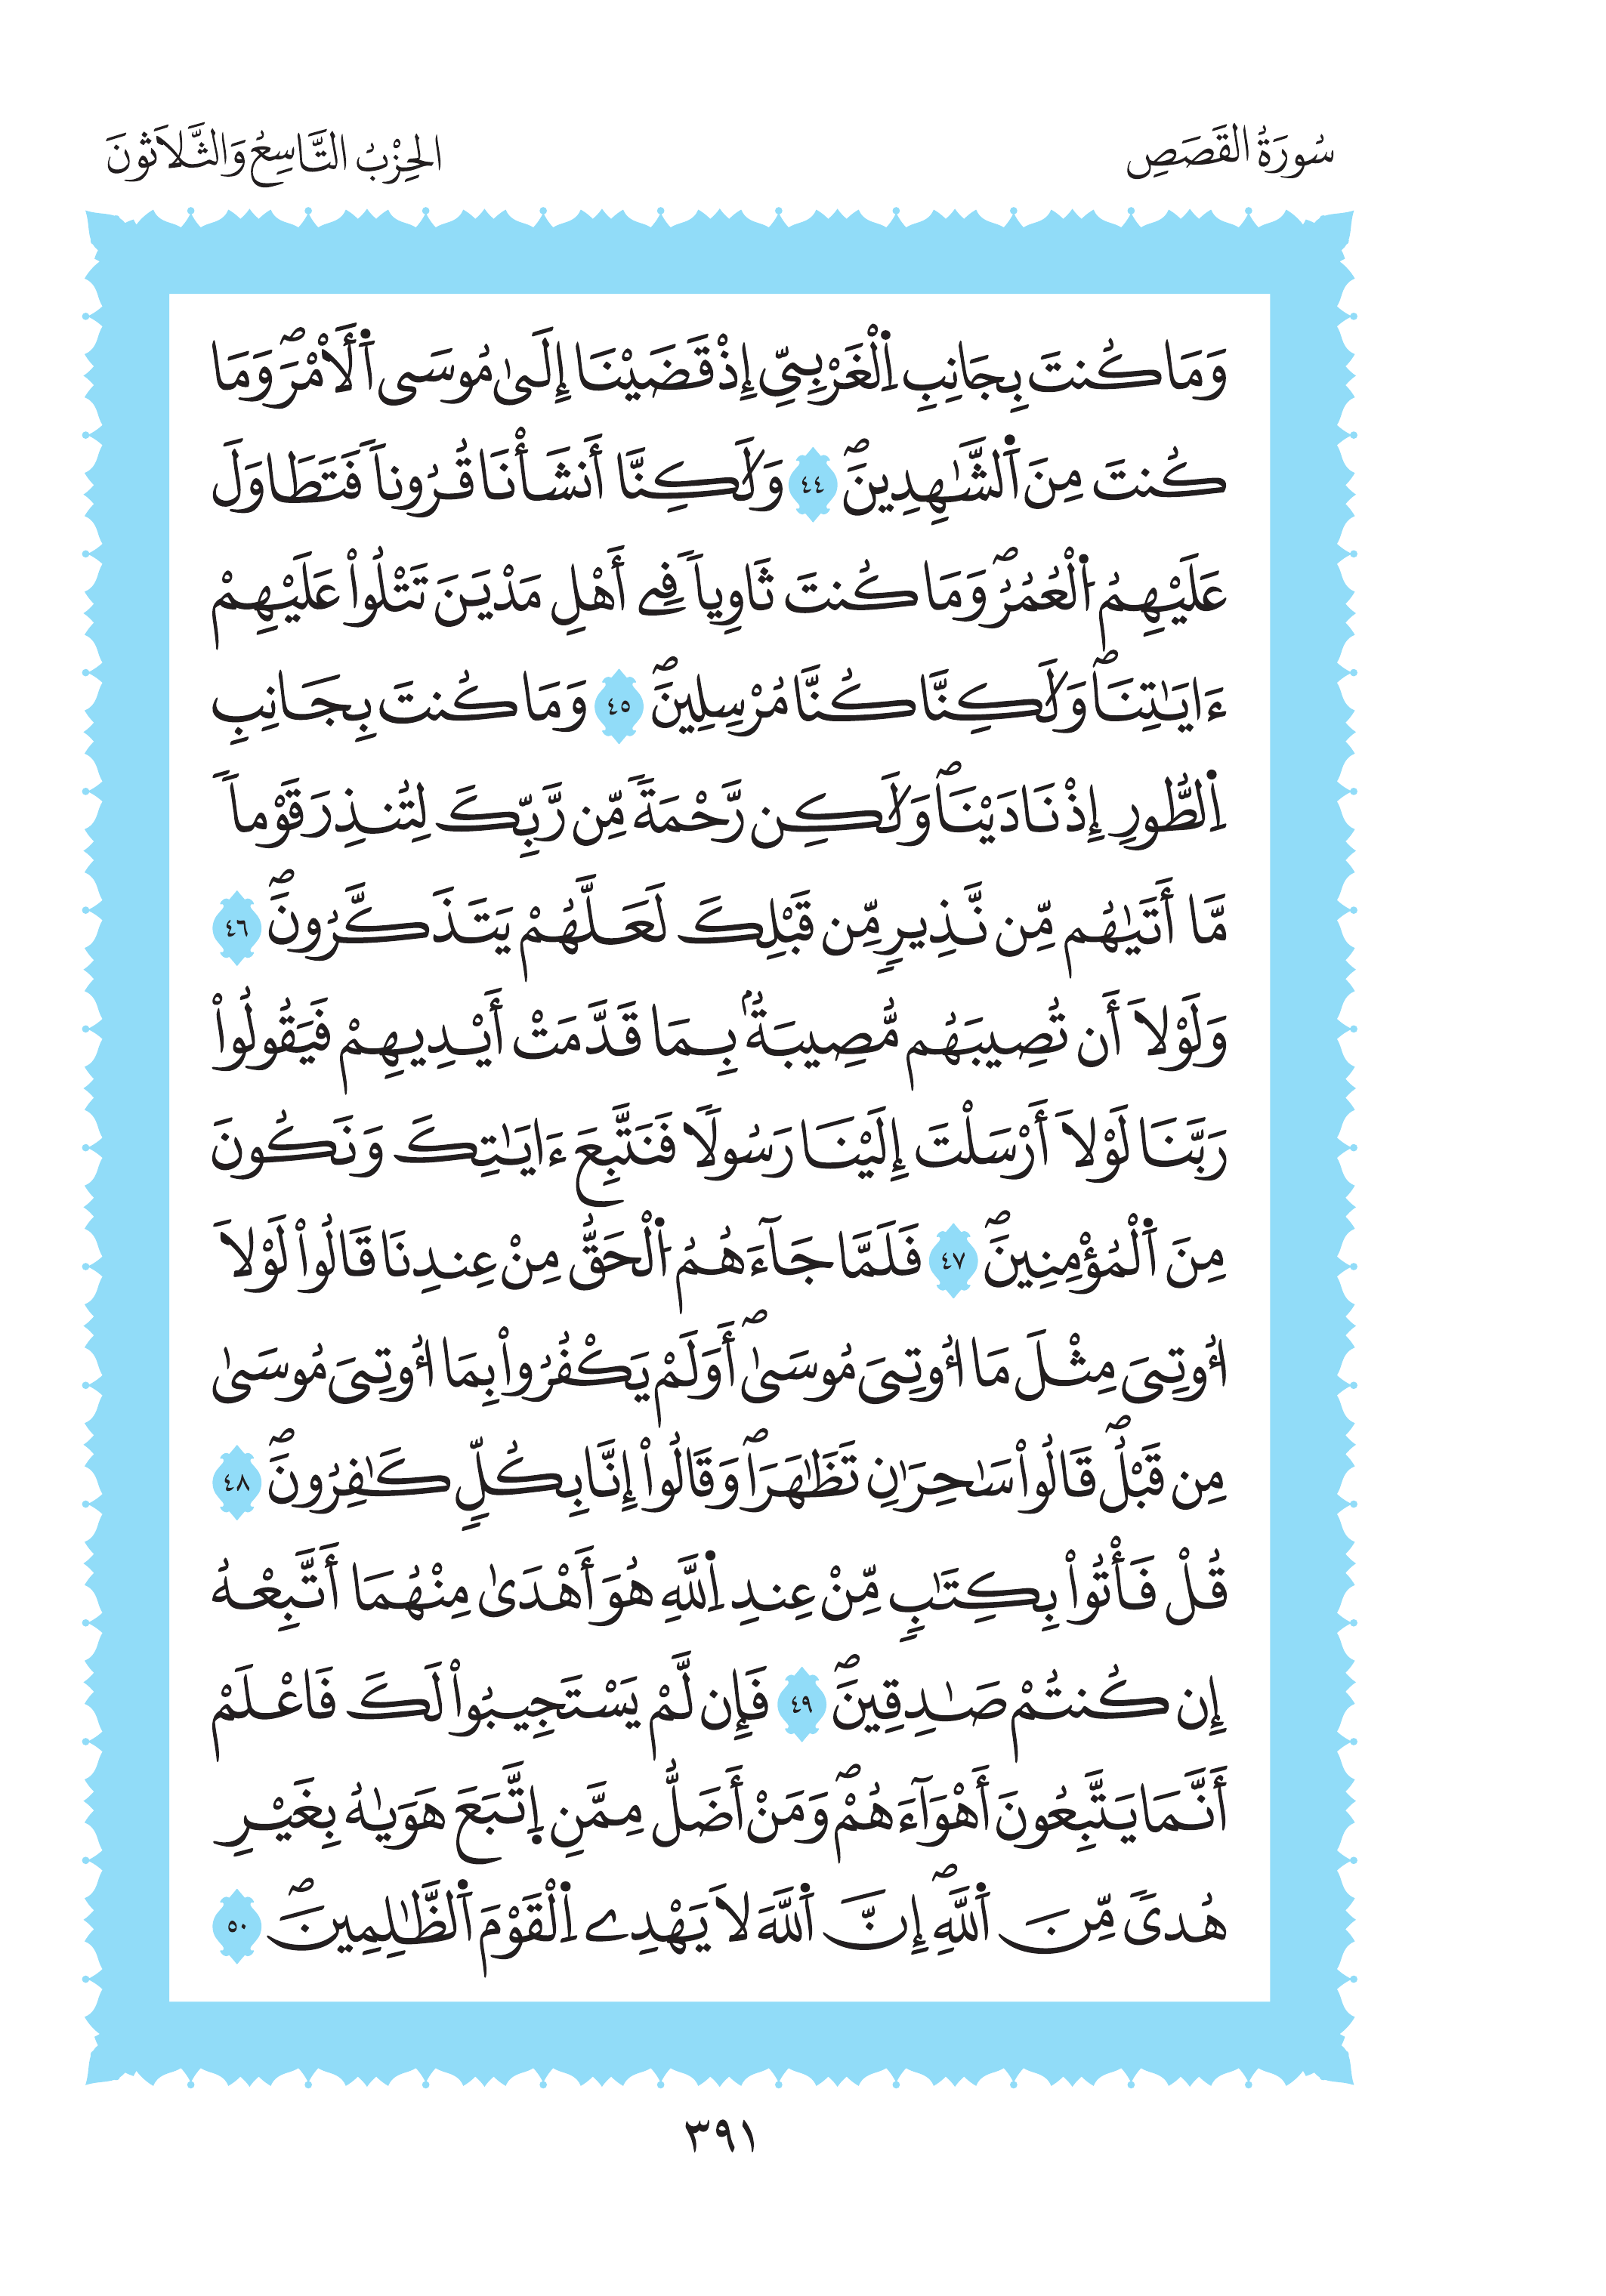 سُورَةُ القَصَصِ
الحِزْبُ التَّاسِعُ وَالثَّلَاثُونَ
وَمَا كُنتَ بِجَانِبِ اِ۬لْغَرْبِيِّ إِذْ قَضَيْنَا إِلَىٰ مُوسَى اَ۬لَامْرَۖ وَمَا
كُنتَ مِنَ اَ۬لشَّٰهِدِينَۖ ٤٤ وَلَٰكِنَّا أَنشَأْنَا قُرُوناٗ فَتَطَاوَلَ
عَلَيْهِمُ اُ۬لْعُمُرُۖ وَمَا كُنتَ ثَاوِياٗ فِے أَهْلِ مَدْيَنَ تَتْلُواْ عَلَيْهِمْ
ءَايَٰتِنَاۖ وَلَٰكِنَّا كُنَّا مُرْسِلِينَۖ ٤٥ وَمَا كُنتَ بِجَانِبِ
اِ۬لطُّورِ إِذْ نَادَيْنَاۖ وَلَٰكِن رَّحْمَةٗ مِّن رَّبِّكَ لِتُنذِرَ قَوْماٗ
مَّا أَتَيٰهُم مِّن نَّذِيرٖ مِّن قَبْلِكَ لَعَلَّهُمْ يَتَذَكَّرُونَۖ ٤٦
وَلَوْلَا أَن تُصِيبَهُم مُّصِيبَةُۢ بِمَا قَدَّمَتْ أَيْدِيهِمْ فَيَقُولُواْ
رَبَّنَا لَوْلَا أَرْسَلْتَ إِلَيْنَا رَسُولاٗ فَنَتَّبِعَ ءَايَٰتِكَ وَنَكُونَ
مِنَ اَ۬لْمُؤْمِنِينَۖ ٤٧ فَلَمَّا جَآءَهُمُ اُ۬لْحَقُّ مِنْ عِندِنَا قَالُواْ لَوْلَا
أُوتِيَ مِثْلَ مَا أُوتِيَ مُوسَىٰۖ أَوَلَمْ يَكْفُرُواْ بِمَا أُوتِيَ مُوسَىٰ
مِن قَبْلُۖ قَالُواْ سَٰحِرَٰنِ تَظَّٰهَرَاۖ وَقَالُواْ إِنَّا بِكُلّٖ كَٰفِرُونَۖ ٤٨
قُلْ فَأْتُواْ بِكِتَٰبٖ مِّنْ عِندِ اِ۬للَّهِ هُوَ أَهْدَىٰ مِنْهُمَا أَتَّبِعْهُ
إِن كُنتُمْ صَٰدِقِينَۖ ٤٩ فَإِن لَّمْ يَسْتَجِيبُواْ لَكَ فَاعْلَمْ
أَنَّمَا يَتَّبِعُونَ أَهْوَآءَهُمْۖ وَمَنْ أَضَلُّ مِمَّنِ اِ۪تَّبَعَ هَوَيٰهُ بِغَيْرِ
هُدىٗ مِّنَ اَ۬للَّهِۖ إِنَّ اَ۬للَّهَ لَا يَهْدِے اِ۬لْقَوْمَ اَ۬لظَّٰلِمِينَۖ ٥٠
٣٩١